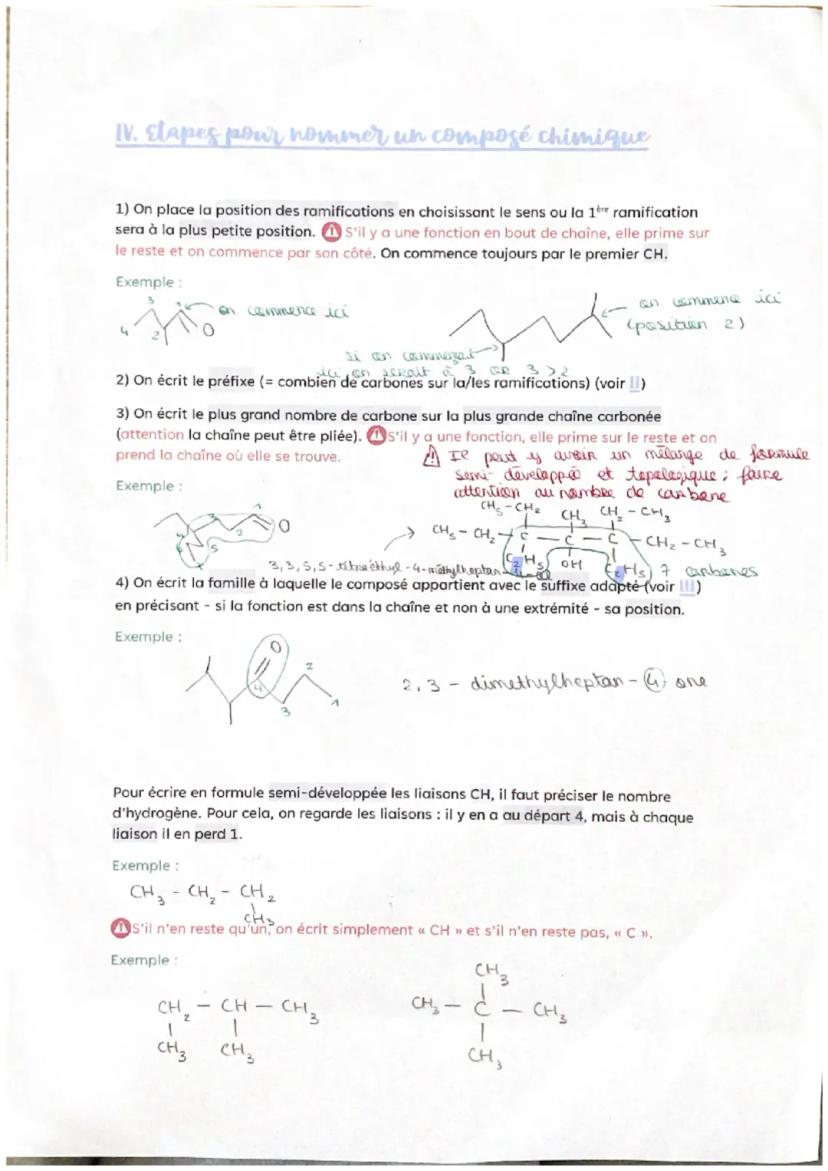 IV. Etapes pour nommer un composé chimique
1) On place la position des ramifications en choisissant le sens ou la 1ère ramification
sera à la plus petite position. S'il y a une fonction en bout de chaîne, elle prime sur
le reste et on commence par son côté. On commence toujours par le premier CH.
Exemple :
on commence ici
on commence ici
(position 2)
3
1
4
2
O
si on commençait
ici on serait à 3 or 3 > 2
2) On écrit le préfixe (= combien de carbones sur la/les ramifications) (voir II)
3) On écrit le plus grand nombre de carbone sur la plus grande chaîne carbonée
(attention la chaîne peut être pliée). S'il y a une fonction, elle prime sur le reste et on
prend la chaîne où elle se trouve.
Il peut y avoir un mélange de formule
semi-développée et topologique ; faire
attention au nombre de carbone
Exemple :
CH5 - CH2 CH3 CH2 - CH3
CH5 - CH2 - C - C - C - CH2 - CH3
C2H5 OH C2H5 7 carbones
O
3,3,5,5-tétraéthyl-4-méthylheptan-4-ol
4) On écrit la famille à laquelle le composé appartient avec le suffixe adapté (voir III)
en précisant - si la fonction est dans la chaîne et non à une extrémité - sa position.
Exemple :
O
4
2
3
1
2,3 - dimethylheptan - 4, one
Pour écrire en formule semi-développée les liaisons CH, il faut préciser le nombre
d'hydrogène. Pour cela, on regarde les liaisons : il y en a au départ 4, mais à chaque
liaison il en perd 1.
Exemple :
CH3 - CH2 - CH2
CH3
S'il n'en reste qu'un, on écrit simplement « CH » et s'il n'en reste pas, « C ».
Exemple :
CH3
CH2 - CH - CH3
CH3 - C - CH3
CH3 CH3
CH3